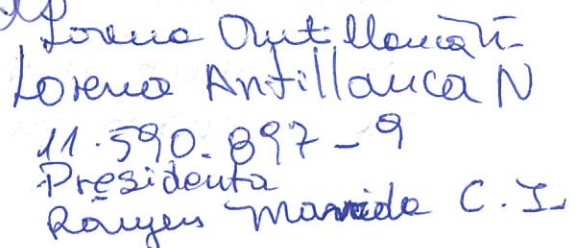 Lorena Antillanca N
Lorena Antillanca N
11.590.897-9
Presidenta
C. I.